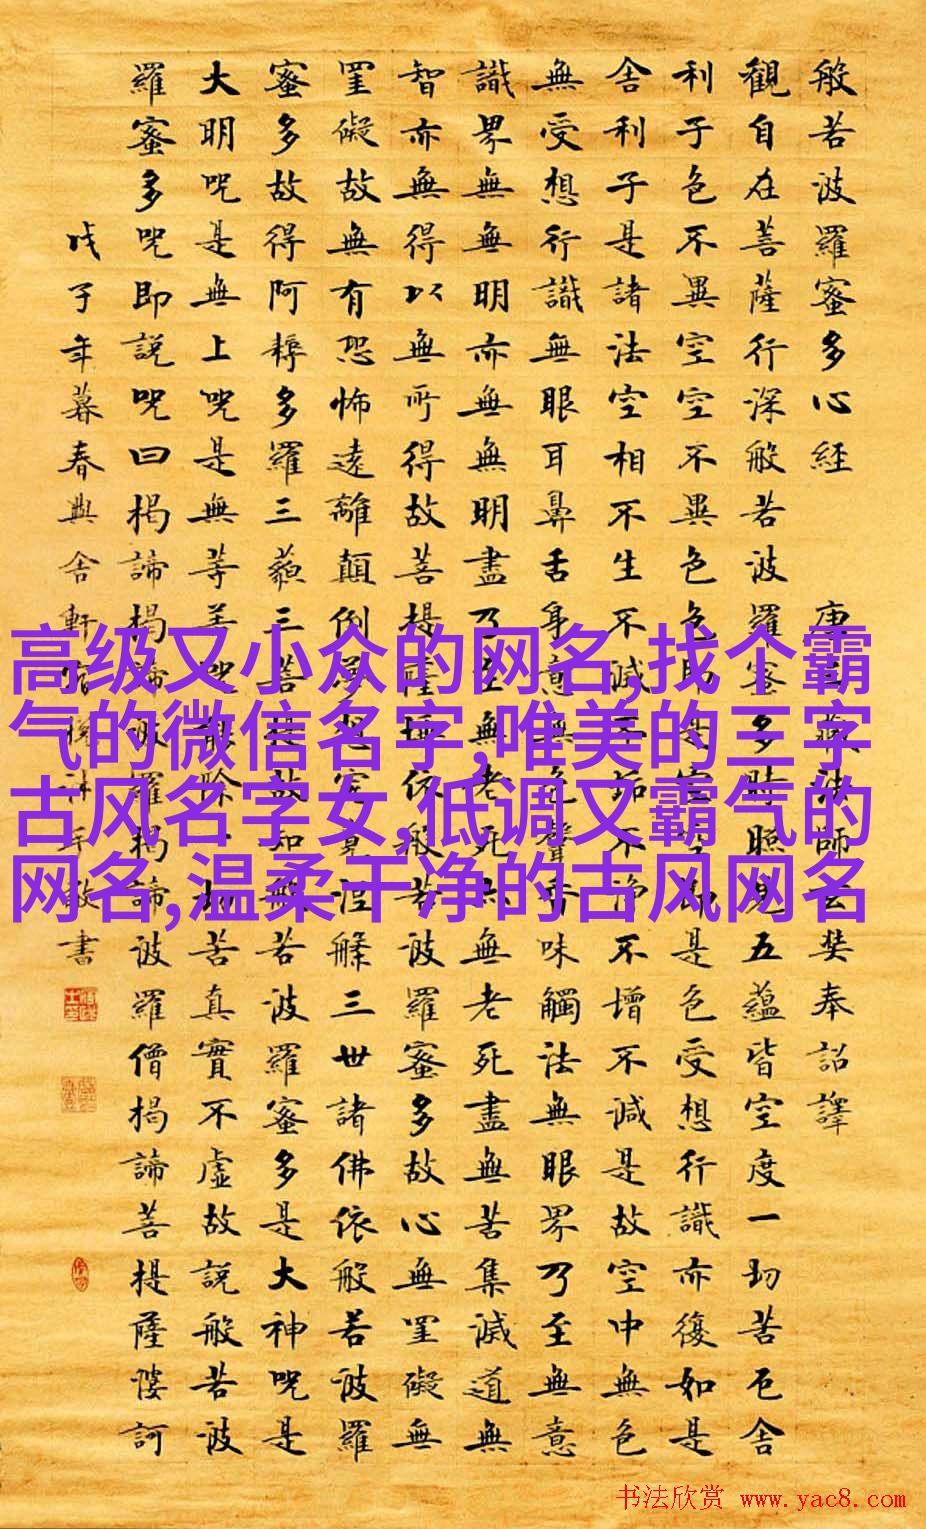 般若波羅蜜多心經 唐三藏法師玄奘奉詔譯
觀自在菩薩行深般若波羅蜜多時照見五蘊皆空度一切苦厄舍
利子色不異空空不異色色即是空空即是色受想行識亦復如是
舍利子是諸法空相不生不滅不垢不淨不增不減是故空中無色
無受想行識無眼耳鼻舌身意無色聲香味觸法無眼界乃至無意
識界無無明亦無無明盡乃至無老死亦無老死盡無苦集滅道無
智亦無得以無所得故菩提薩埵依般若波羅蜜多故心無罣礙無
罣礙故無有恐怖遠離顛倒夢想究竟涅槃三世諸佛依般若波羅
蜜多故得阿耨多羅三藐三菩提故知般若波羅蜜多是大神咒是
大明咒是無上咒是無等等咒能除一切苦真實不虛故說般若波
羅蜜多咒即說咒曰揭諦揭諦波羅揭諦波羅僧揭諦菩提薩婆訶
戊子年暮春典舍軒書
高级又小众的网名,找个霸
气的微信名字,唯美的三字
古风名字女,低调又霸气的
网名,温柔干净的古风网名
书法欣赏 www.yac8.com